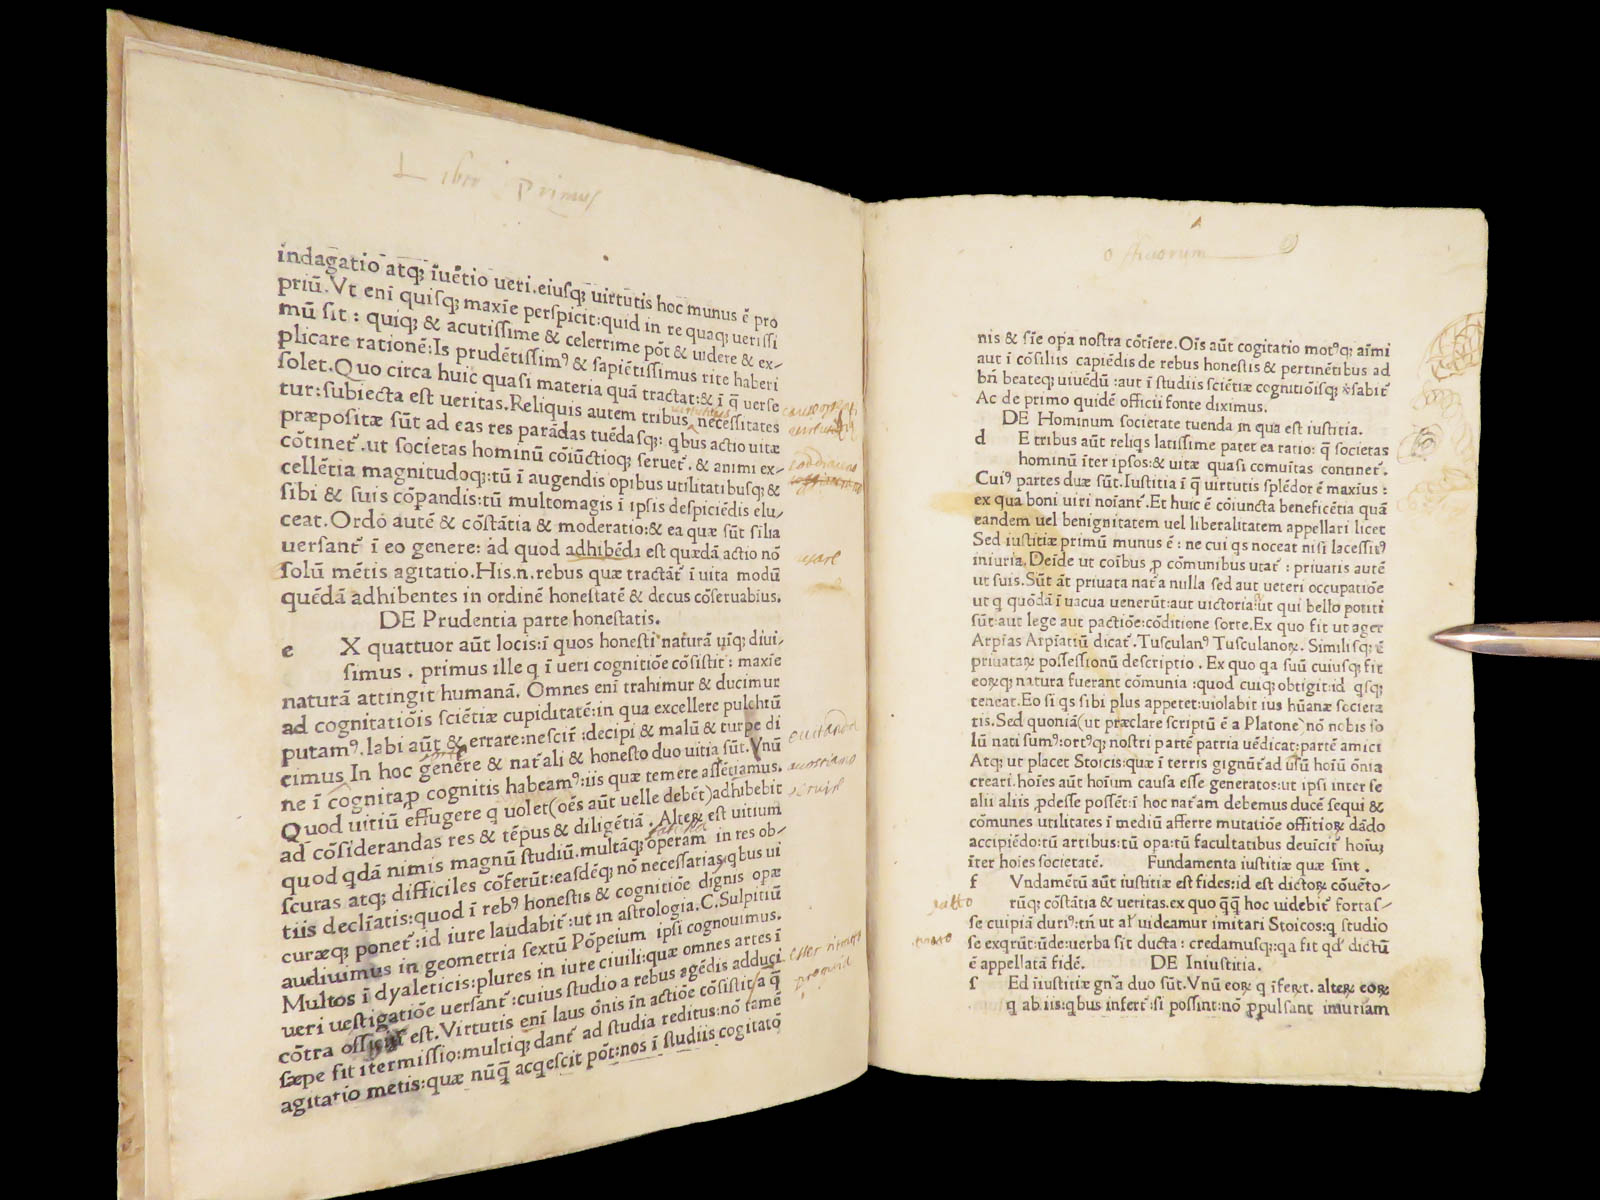 Libro Primus
indagatio atq; ĩuẽtio ueri. eiusq; uirtutis hoc munus ẽ pro
priũ. Vt eni quisq; maxĩe perspicit: quid in re quaq; uerissi
mũ sit: quiq; & acutissime & celerrime põt & uidere & ex-
plicare rationẽ: Is prudẽtissim⁹ & sapiẽtissimus rite haberi
solet. Quo circa huic quasi materia quã tractat: & ĩ q̃ uerse
tur: subiecta est ueritas. Reliquis autem tribus necessitates
præpositæ sũt ad eas res parãdas tuẽdasq;: qbus actio uitæ
cõtinet͛. ut societas hominũ cõiũctioq; seruet͛. & animi ex-
cellẽtia magnitudoq;: tũ ĩ augendis opibus utilitatibusq; &
sibi & suis cõpandis: tũ multomagis ĩ ipsis despiciẽdis elu-
ceat. Ordo autẽ & cõstãtia & moderatio: & ea quæ sũt silia
uersant͛ ĩ eo genere: ad quod adhibẽda est quædã actio nõ
solũ mẽtis agitatio. His.n. rebus quæ tractãt͛ ĩ uita modũ
quẽdã adhibentes in ordinẽ honestatẽ & decus cõseruabius.
DE Prudentia parte honestatis.
e X quattuor aũt locis: ĩ quos honesti naturã uĩq; diui-
simus. primus ille q ĩ ueri cognitiõe cõsistit: maxĩe
naturã attingit humanã. Omnes eni trahimur & ducimur
ad cognitatiõis sciẽtiæ cupiditatẽ: in qua excellere pulchrũ
putam⁹. labi aũt & errare: nescir̃: decipi & malũ & turpe di
cimus In hoc genere & nat͛ali & honesto duo uitia sũt. Vnũ
ne ĩ cognita ꝓ cognitis habeam⁹: iis quæ temere assẽtiamus.
Quod uitiũ effugere q uolet (oẽs aũt uelle debẽt) adhibebit
ad cõsiderandas res & tẽpus & diligẽtiã. Alteꝝ est uitium
quod qdã nimis magnũ studiũ. multãq; operam in res ob-
scuras atq; difficiles cõferũt: easdẽq; nõ necessarias qbus ui
tiis declĩatis: quod ĩ reb⁹ honestis & cognitiõe dignis opæ
curæq; ponet͛: id iure laudabit͛: ut in astrologia. C. Sulpitiũ
audiuimus in geometria sextũ Põpeium ipsi cognouimus.
Multos ĩ dyaleticis: plures in iure ciuili: quæ omnes artes ĩ
ueri uestigatiõe uersant͛: cuius studio a rebus agẽdis adduci
cõtra officiũ est. Virtutis eni laus õnis in actiõe cõsistit: a q̃
sæpe fit itermissio: multiq; dant͛ ad studia reditus: nõ tamẽ
agitatio metis: quæ nũq̃ acqescit põt: nos ĩ studiis cogitatõ
virtutibus
usare
accostiamo
seruire
officiorum
nis & sĩe opa nostra cõtĩere. Oĩs aũt cogitatio mot⁹q; aĩmi
aut ĩ cõsiliis capiẽdis de rebus honestis & pertinẽtibus ad
bñ beateq; uiuẽdũ: aut ĩ studiis sciẽtiæ cognitiõisq; ꝟsabit͛
Ac de primo quidẽ officii fonte diximus.
DE Hominum societate tuenda in qua est iustitia.
d E tribus aũt reliqs latissime patet ea ratio: q̃ societas
hominũ ĩter ipsos: & uitæ quasi comuĩtas continet͛.
Cui⁹ partes duæ sũt. Iustitia ĩ q̃ uirtutis splẽdor ẽ maxĩus:
ex qua boni uiri noĩant͛. Et huic ẽ cõiuncta beneficẽtia quã
eandem uel benignitatem uel liberalitatem appellari licet
Sed iustitiæ primũ munus ẽ: ne cui qs noceat nisi lacessit⁹
iniuria. Deĩde ut coĩbus ꝓ cõmunibus utat͛: priuatis autẽ
ut suis. Sũt ãt priuata nat͛a nulla sed aut ueteri occupatiõe
ut q quõdã ĩ uacua uenerũt: aut uictoria: ut qui bello potiti
sũt: aut lege aut pactiõe: cõditione sorte. Ex quo fit ut ager
Arpĩas Arpĩatiũ dicat͛. Tusculan⁹ Tusculanoꝝ. Similisq; ẽ
priuataꝝ possessionũ descriptio. Ex quo qa suũ cuiusq; fit
eoꝝq; natura fuerant cõmunia: quod cuiq; obtigit: id qsq;
teneat. Eo si qs sibi plus appetet: uiolabit ius hũanæ societa
tis. Sed quoniã (ut præclare scriptũ ẽ a Platone) nõ nobis so
lũ nati sum⁹: ort⁹q; nostri partẽ patria uẽdicat: partẽ amici
Atq; ut placet Stoicis: quæ ĩ terris gignũt͛ ad usũ hoĩũ õnia
creari. hoĩes aũt hoĩum causa esse generatos: ut ipsi inter se
alii aliis ꝓdesse possẽt: ĩ hoc nat͛am debemus ducẽ sequi &
cõmunes utilitates ĩ mediũ afferre mutatiõe offitioꝝ dãdo
accipiẽdo: tũ artibus: tũ opa: tũ facultatibus deuĩcit͛ hoĩu,
ĩter hoĩes societatẽ. Fundamenta iustitiæ quæ sint.
f Vndamẽtũ aũt iustitiæ est fides: id est dictoꝝ cõuẽto-
rũq; cõstãtia & ueritas. ex quo q̃q̃ hoc uidebit͛ fortas-
se cuipiã duri⁹: tñ ut al͛ uideamur imitari Stoicos: q studio
se exqrũt: ũde: uerba sit ducta: credamusq;: qa fit qd͛ dictũ
ẽ appellatã fidẽ. DE Iniustitia.
f Ed iniustitiæ gñ͛a duo sũt. Vnũ eoꝝ q ĩferũt. alteꝝ eoꝝ
q ab iis: qbus infert͛: si possint: nõ ꝓpulsant iniuriam